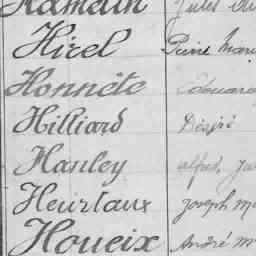 Hamelin Jules
Hirel Pierre Marie
Honnête Edouard
Hilliard Désiré
Hanley alfred, Ja
Heurtaux Joseph M
Houeix André M